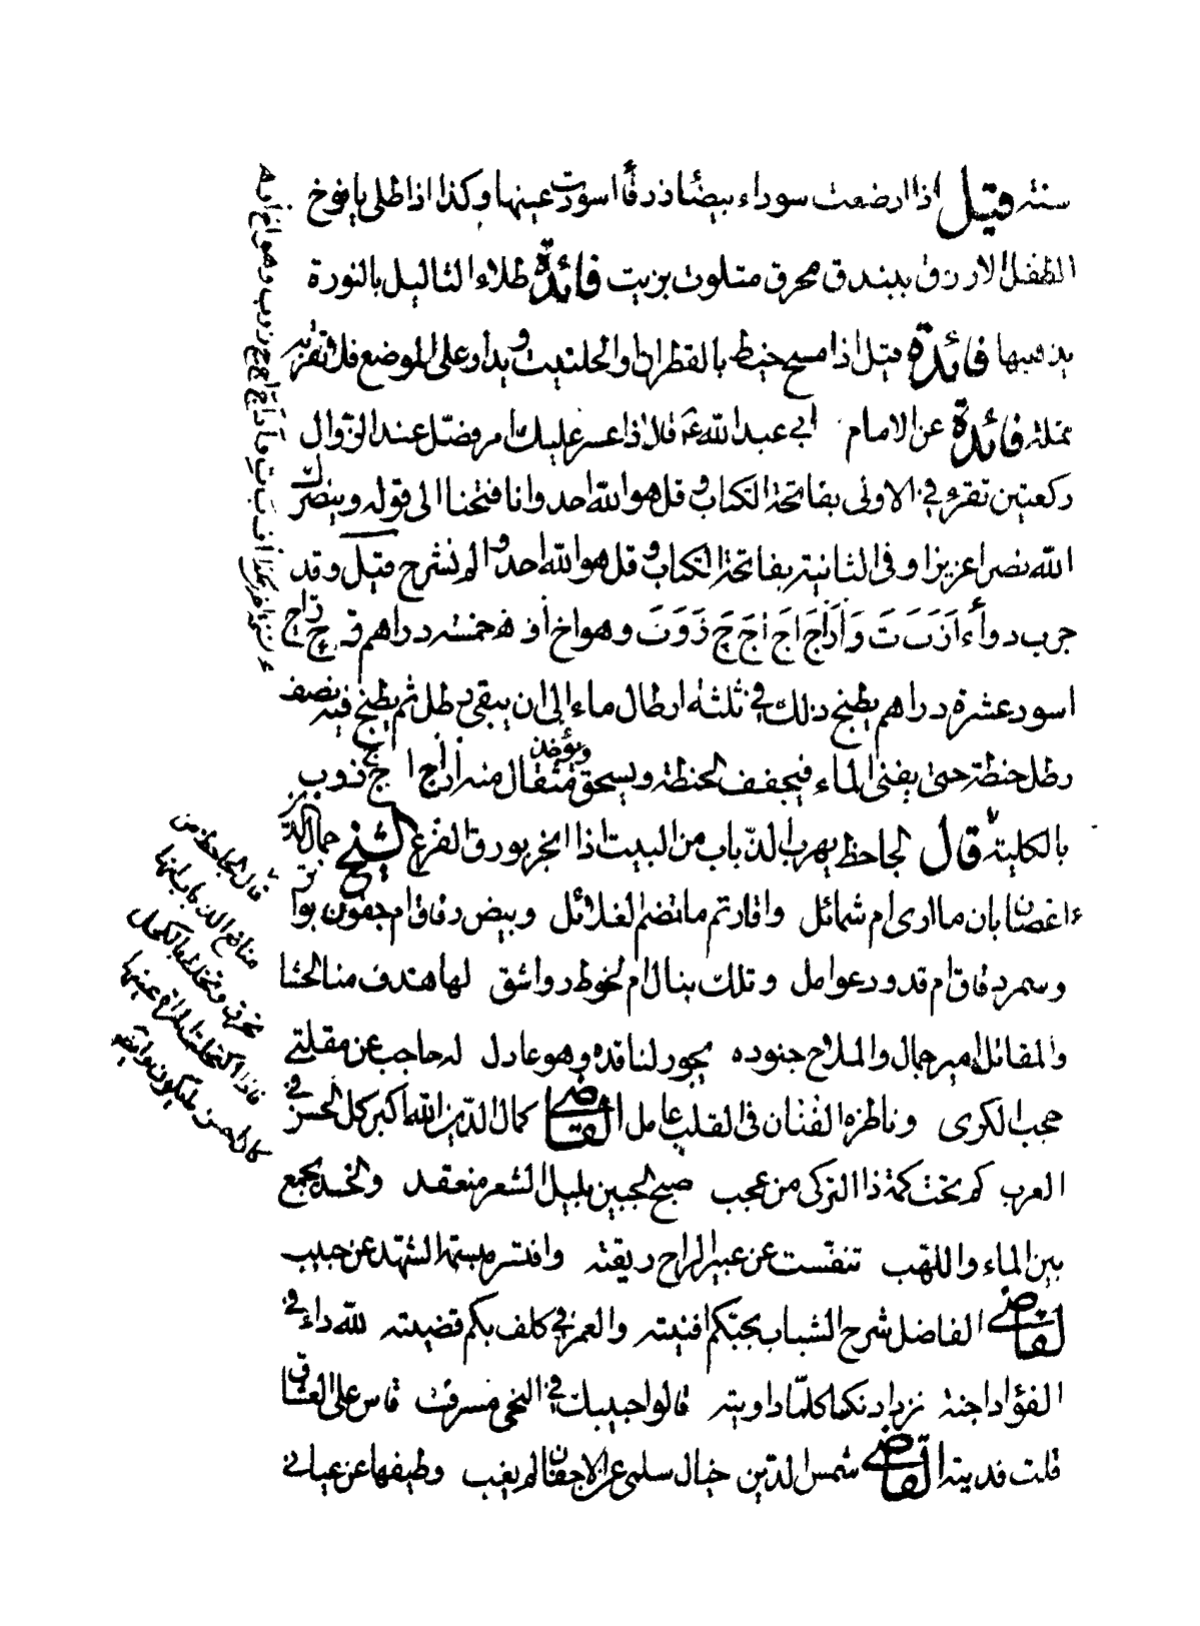 سنة قيل اذا ارضعت سوداء بيضًا ذرقًا اسودّت عينها وكذا اذا طلى يافوخ
الطفل الازرق ببندق محرق متلوت بزيت فائدة طلاء الثاليل بالنورة
يذهبها فائدة قيل اذا مسح خيط بالقطران والحلتيت ويداو على الموضع فلا تقربه
نملة فائدة عن الامام ابي عبد الله ع قال اذا عسر عليك امر فصل عند الزوال
ركعتين تقرء في الاولى بفاتحة الكتاب وقل هو الله احد وانا فتحنا الى قوله وينصرك
الله نصرا عزيزا وفى الثانية بفاتحة الكتاب وقل هو الله احد والم نشرح قيل وقد
جرب دواء وهو خمسة دراهم
اسود عشرة دراهم يطبخ ذلك في ثلثة ارطال ماء الى ان يبقى رطل ثم يطبخ فيه نصف
رطل حنطة حتى يفنى الماء فيجفف الحنطة ويسحق ويؤخذ مثقال منه
بالكلية قال الجاحظ يهرب الذباب من البيت اذا بخر بورق القرع الشيخ جمال الدين
اغصان بان ما ارى ام شمائل واقار تم ما تضم الغلائل وبيض رقاق ام جفون بوا
وسمر دقاق ام قدود عوامل وتلك نبال ام لحوظ رواشق لها هدف منا الحشا
والمقاتل امير جمال والملاح جنوده يجور لنا قده وهو عادل له حاجب عن مقلتي
حجب الكرى وناظره الفتان فى القلب عامل القاضي كمال الدين الله اكبر كل الحسن في
العرب كم تحت كمة ذا التركى من عجب صبح الجبين بليل الشعر منعقد والخد يجمع
بين الماء واللهب تنفست عن عبير الراح ريقته وافتر مبسمه الشهد عن حبب
القاضي الفاضل شرح الشباب بحبكم افنيته والعمر في كلف بكم قضيته لله داء في
الفؤاد اجنه يزداد نكسا كلما داويته قالوا حبيبك في التجني مسرف قاس على العشاق
قلت فديته القاضي شمس الدين خيال سلمى عن الاجفان لم يغب وطيفها عن عياني
قال الجاحظ من
منافع الذباب انها
تحرق وتخلط بالكحل
فاذا اكتحلت المراة عينها
كان احسن ما يكون